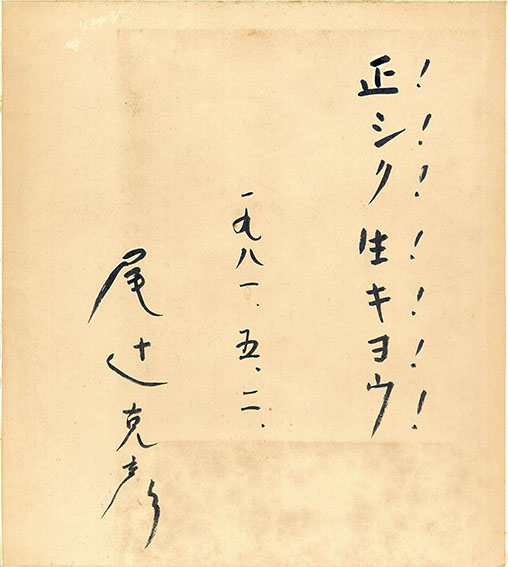 ！！！！！！！
正シク生キヨウ
一九八一、五、二、
尾辻克彦